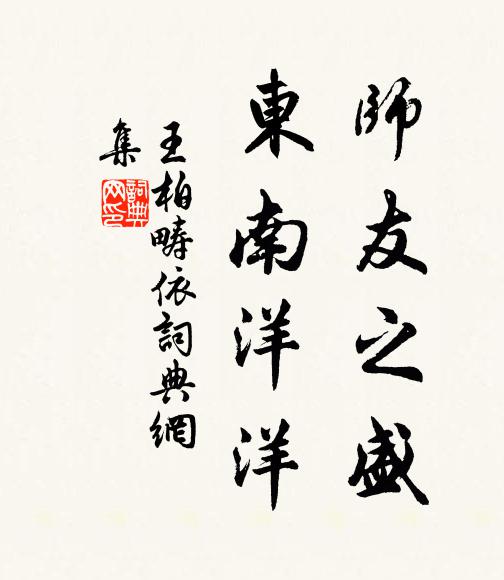 師友之盛
東南洋洋
王柏疇依詞典網
集
詞典網印